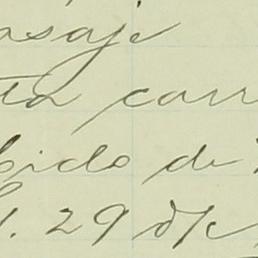 asaje
ta carr
bido de
29 d/c